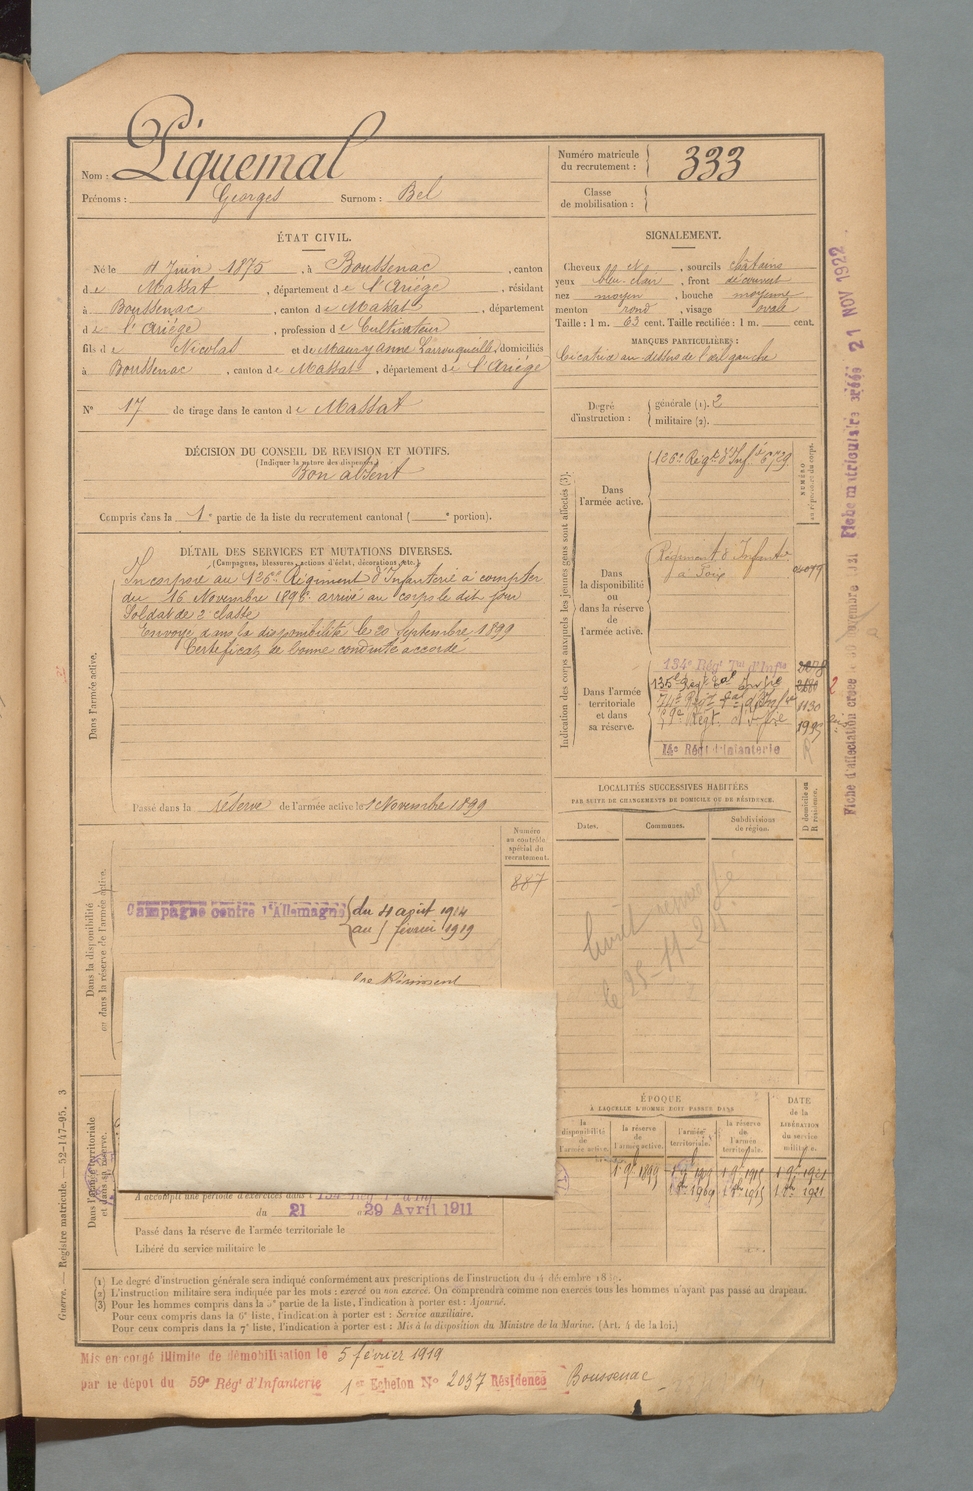 Nom : Piquemal
Prénoms : Georges Surnom : Bel
Numéro matricule du recrutement : 333
Classe de mobilisation :
ÉTAT CIVIL.
Né le 4 Juin 1875, à Boussenac, canton
de Massat, département de l'Ariége, résidant
à Boussenac, canton de Massat, département
de l'Ariége, profession de Cultivateur
fils de Nicolas et de Maury Anne, domiciliés
à Boussenac, canton de Massat, département de l'Ariége
N° 17 de tirage dans le canton de Massat
SIGNALEMENT.
Cheveux, sourcils châtains
yeux bleu clair, front découvert
nez moyen, bouche moyenne
menton rond, visage ovale
Taille : 1 m. 63 cent. Taille rectifiée : 1 m. cent.
MARQUES PARTICULIÈRES :
Cicatrice au dessus de l'œil gauche
Degré d'instruction : générale (1). 2
militaire (2).
DÉCISION DU CONSEIL DE REVISION ET MOTIFS.
(Indiquer la nature des dispenses)
Bon absent
Compris dans la 1e partie de la liste du recrutement cantonal ( e portion).
DÉTAIL DES SERVICES ET MUTATIONS DIVERSES.
(Campagnes, blessures, actions d'éclat, décorations, etc.)
Incorporé au 126e Régiment d'Infanterie à compter
du 16 Novembre 1896 arrivé au corps le dit jour
Soldat de 2e classe
Envoyé dans la disponibilité le 20 Septembre 1899
Certificat de bonne conduite accordé
Dans l'armée active.
Passé dans la réserve de l'armée active le 1 Novembre 1899
Indication des corps auxquels les jeunes gens sont affectés (3).
NUMÉRO au répertoire du corps.
Dans l'armée active.
126e Régt d'Infie 6729
Dans la disponibilité ou dans la réserve de l'armée active.
Régiment d'Infanterie
à Foix
Dans l'armée territoriale et dans sa réserve.
134e Régt Tal d'Infie 2078
135e Régt Tal d'Infie
74e Régt Tal d'Infie 1130
59e Régt d'Infie
14e Régt d'Infanterie
LOCALITÉS SUCCESSIVES HABITÉES
PAR SUITE DE CHANGEMENTS DE DOMICILE OU DE RÉSIDENCE.
Dates. Communes. Subdivisions de région. D domicile ou R résidence.
Numéro au contrôle spécial du recrutement.
887
Dans la disponibilité ou dans la réserve de l'armée active.
Campagne contre l'Allemagne du 4 août 1914
au 5 février 1919
livret
le 25-11-21
ÉPOQUE
À LAQUELLE L'HOMME DOIT PASSER DANS
la disponibilité de l'armée active.
la réserve de l'armée active.
l'armée territoriale.
la réserve de l'armée territoriale.
DATE de la LIBÉRATION du service militaire.
Dans l'armée territoriale et dans sa réserve.
A accompli une période d'exercices dans l 134e Régt Tal d'Inf
du 21 au 29 Avril 1911
Passé dans la réserve de l'armée territoriale le
Libéré du service militaire le
(1) Le degré d'instruction générale sera indiqué conformément aux prescriptions de l'instruction du 4 décembre 18
(2) L'instruction militaire sera indiquée par les mots : exercé ou non exercé. On comprendra comme non exercés tous les hommes n'ayant pas passé au drapeau.
(3) Pour les hommes compris dans la 5e partie de la liste, l'indication à porter est : Ajourné.
Pour ceux compris dans la 6e liste, l'indication à porter est : Service auxiliaire.
Pour ceux compris dans la 7e liste, l'indication à porter est : Mis à la disposition du Ministre de la Marine. (Art. 4 de la loi.)
Guerre. — Registre matricule. — 52-147-95. 3
Mis en congé illimité de démobilisation le 5 février 1919
par le dépot du 59e Régt d'Infanterie 1er Echelon N° 2037 Résidence Boussenac
21 NOV 1922